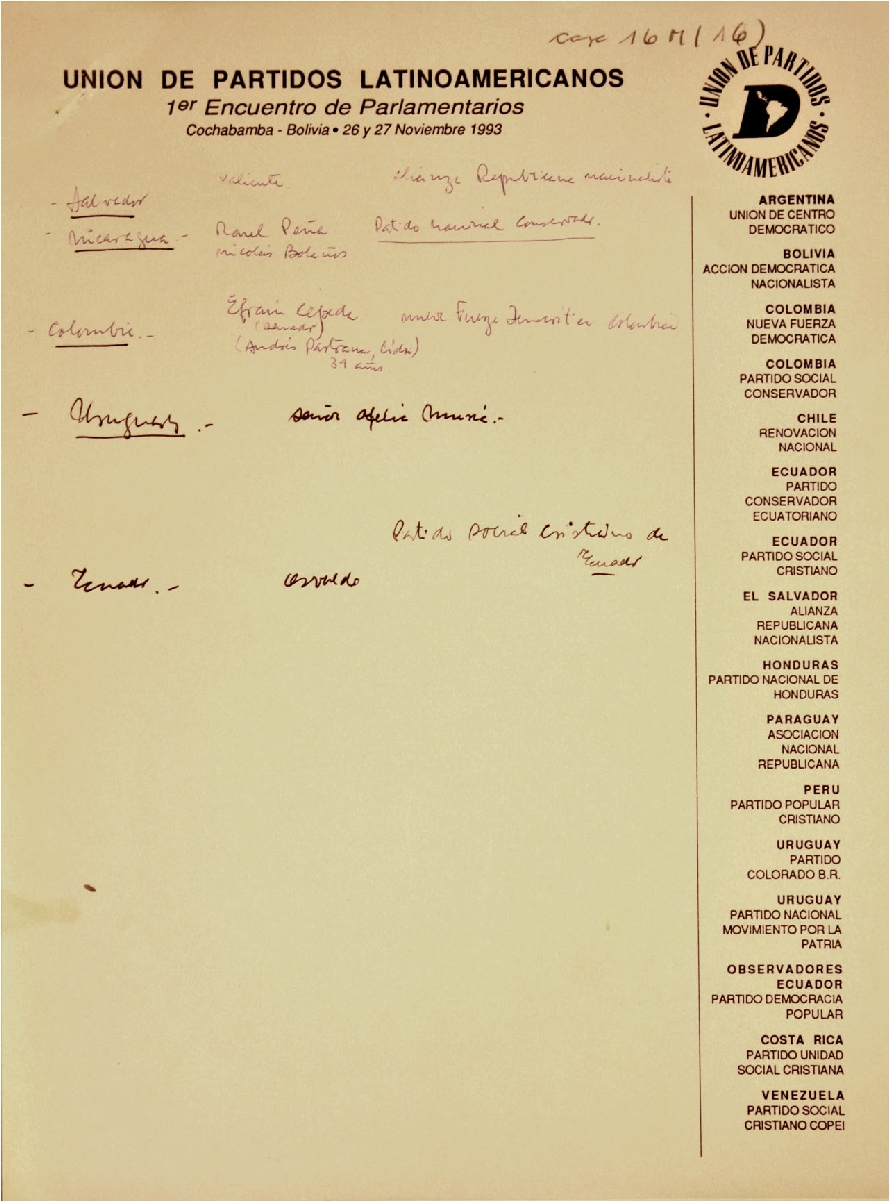 caja 16 M (16)
UNION DE PARTIDOS LATINOAMERICANOS
1er Encuentro de Parlamentarios
Cochabamba - Bolivia • 26 y 27 Noviembre 1993
· UNION DE PARTIDOS · LATINOAMERICANOS
D
Valiente. Alianza Republicana nacionalista
- Salvador
- Nicaragua - Raul Peña Partido nacional Conservador.
Nicolás Bolaños
- Colombia.- Efraín Cepeda nueva Fuerza Democrática Colombia
(senador)
(Andrés Pastrana, lider)
39 años
- Uruguay.- señor
Partido Social Cristiano de
Ecuador
- Ecuador.- Osvaldo
ARGENTINA
UNION DE CENTRO
DEMOCRATICO
BOLIVIA
ACCION DEMOCRATICA
NACIONALISTA
COLOMBIA
NUEVA FUERZA
DEMOCRATICA
COLOMBIA
PARTIDO SOCIAL
CONSERVADOR
CHILE
RENOVACION
NACIONAL
ECUADOR
PARTIDO
CONSERVADOR
ECUATORIANO
ECUADOR
PARTIDO SOCIAL
CRISTIANO
EL SALVADOR
ALIANZA
REPUBLICANA
NACIONALISTA
HONDURAS
PARTIDO NACIONAL DE
HONDURAS
PARAGUAY
ASOCIACION
NACIONAL
REPUBLICANA
PERU
PARTIDO POPULAR
CRISTIANO
URUGUAY
PARTIDO
COLORADO B.R.
URUGUAY
PARTIDO NACIONAL
MOVIMIENTO POR LA
PATRIA
OBSERVADORES
ECUADOR
PARTIDO DEMOCRACIA
POPULAR
COSTA RICA
PARTIDO UNIDAD
SOCIAL CRISTIANA
VENEZUELA
PARTIDO SOCIAL
CRISTIANO COPEI